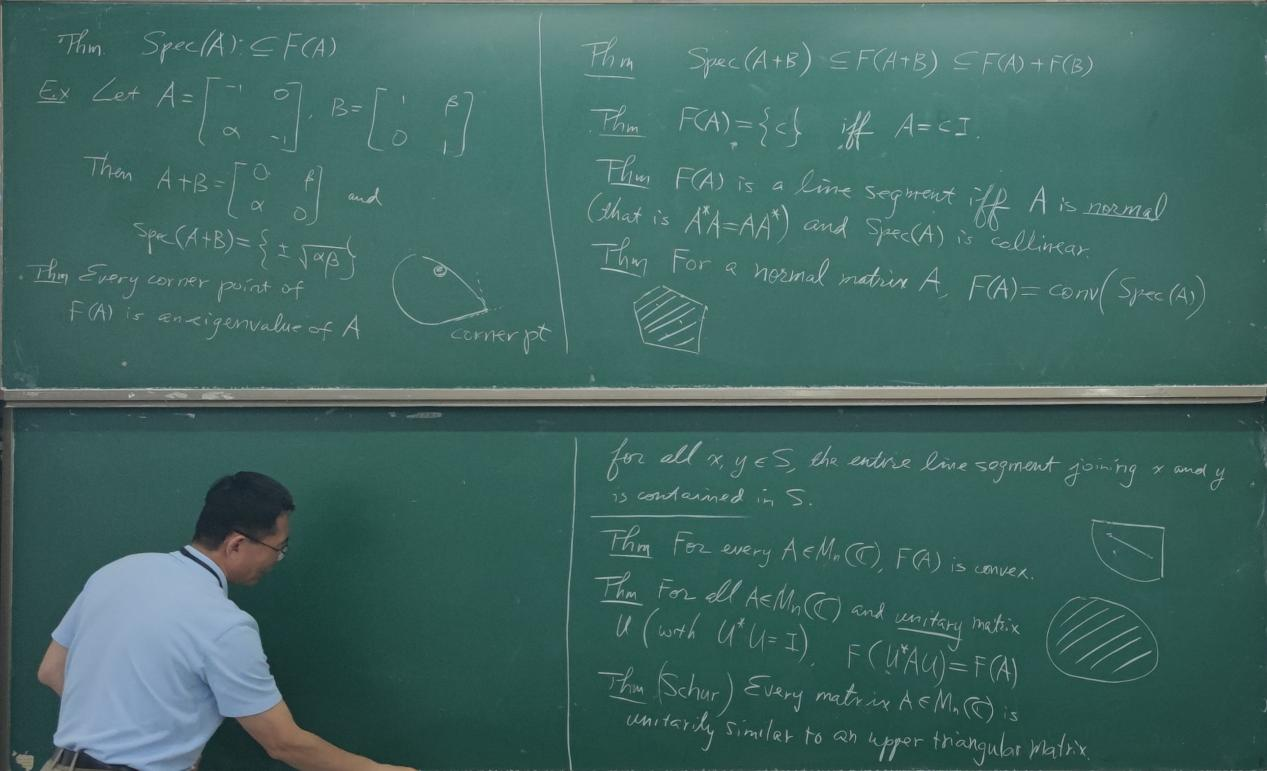 Thm. Spec(A) ⊆ F(A)
Ex Let A = [ -1 0 ; α -1 ], B = [ 1 β ; 0 1 ]
Then A+B = [ 0 β ; α 0 ] and
Spec(A+B) = { ± √αβ }
Thm Every corner point of
F(A) is an eigenvalue of A
corner pt
Thm Spec(A+B) ⊆ F(A+B) ⊆ F(A)+F(B)
Thm F(A) = {c} iff A = cI.
Thm F(A) is a line segment iff A is normal
(that is A*A=AA*) and Spec(A) is collinear.
Thm For a normal matrix A, F(A) = conv(Spec(A))
for all x, y ∈ S, the entire line segment joining x and y
is contained in S.
Thm For every A∈Mn(ℂ), F(A) is convex.
Thm For all A∈Mn(ℂ) and unitary matrix
U (with U*U=I), F(U*AU)=F(A)
Thm (Schur) Every matrix A∈Mn(ℂ) is
unitarily similar to an upper triangular matrix.